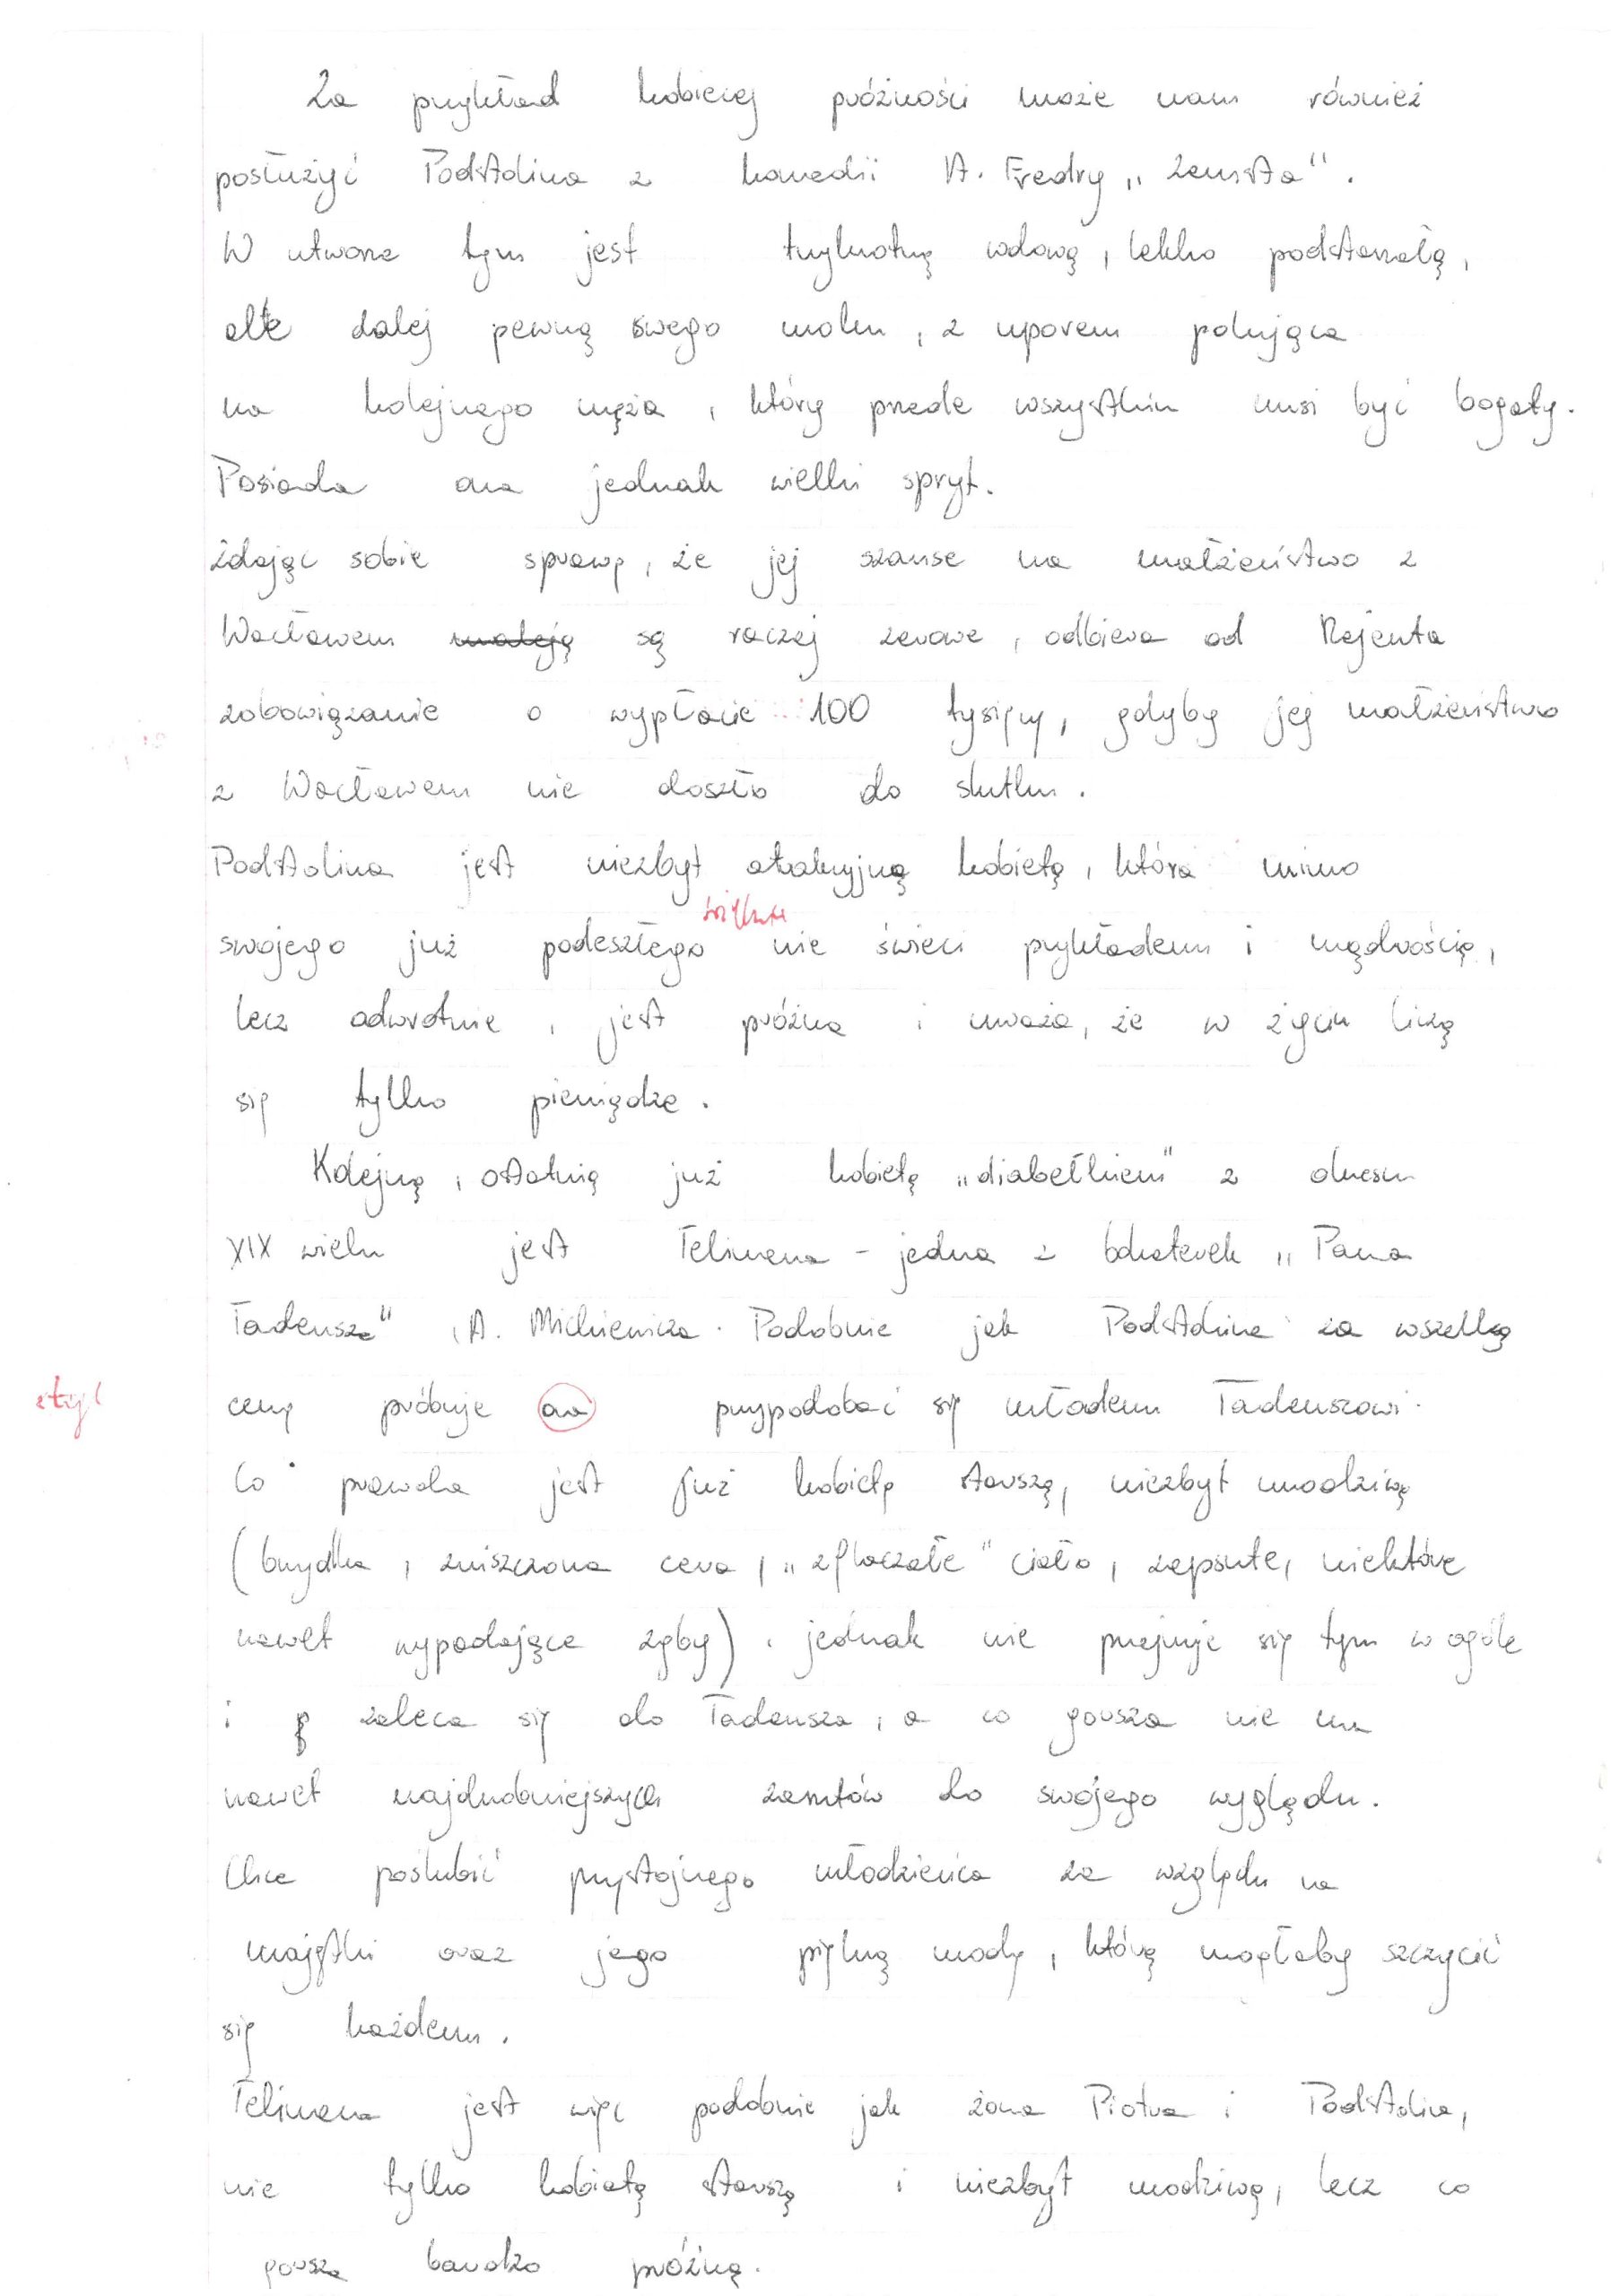 Za przykład kobiecej próżności może nam również
posłużyć Podstolina z komedii A. Fredry „Zemsta".
W utworze tym jest trzykrotną wdową, lekko podstarzałą,
ale dalej pewną swego wdzięku, z uporem polująca
na kolejnego męża, który przede wszystkim musi być bogaty.
Posiada ona jednak wielki spryt.
Zdając sobie sprawę, że jej szanse na małżeństwo z
Wacławem maleją są raczej zerowe, odbiera od Rejenta
zobowiązanie o wypłacie 100 tysięcy, gdyby jej małżeństwo
z Wacławem nie doszło do skutku.
Podstolina jest niezbyt atrakcyjną kobietą, która mimo
wieku
swojego już podeszłego nie świeci przykładem i mądrością,
lecz odwrotnie, jest próżna i uważa, że w życiu liczą
się tylko pieniądze.
Kolejną i ostatnią już kobietą „diabełkiem" z okresu
XIX wieku jest Telimena - jedna z bohaterek „Pana
Tadeusza" A. Mickiewicza. Podobnie jak Podstolina za wszelką
styl
cenę próbuje ona przypodobać się młodemu Tadeuszowi.
Co prawda jest już kobietą starszą, niezbyt urodziwą
(brzydka, zniszczona cera, „sflaczałe" ciało, zepsute, niektóre
nawet wypadające zęby), jednak nie przejmuje się tym w ogóle
i zaleca się do Tadeusza, a co gorsza nie ma
nawet najdrobniejszych zarzutów do swojego wyglądu.
Chce poślubić przystojnego młodzieńca ze względu na
majątki oraz jego piękną urodę, którą mogłaby szczycić
się każdemu.
Telimena jest więc podobnie jak żona Piotra i Podstolina,
nie tylko kobietą starszą i niezbyt urodziwą, lecz co
gorsza bardzo próżną.